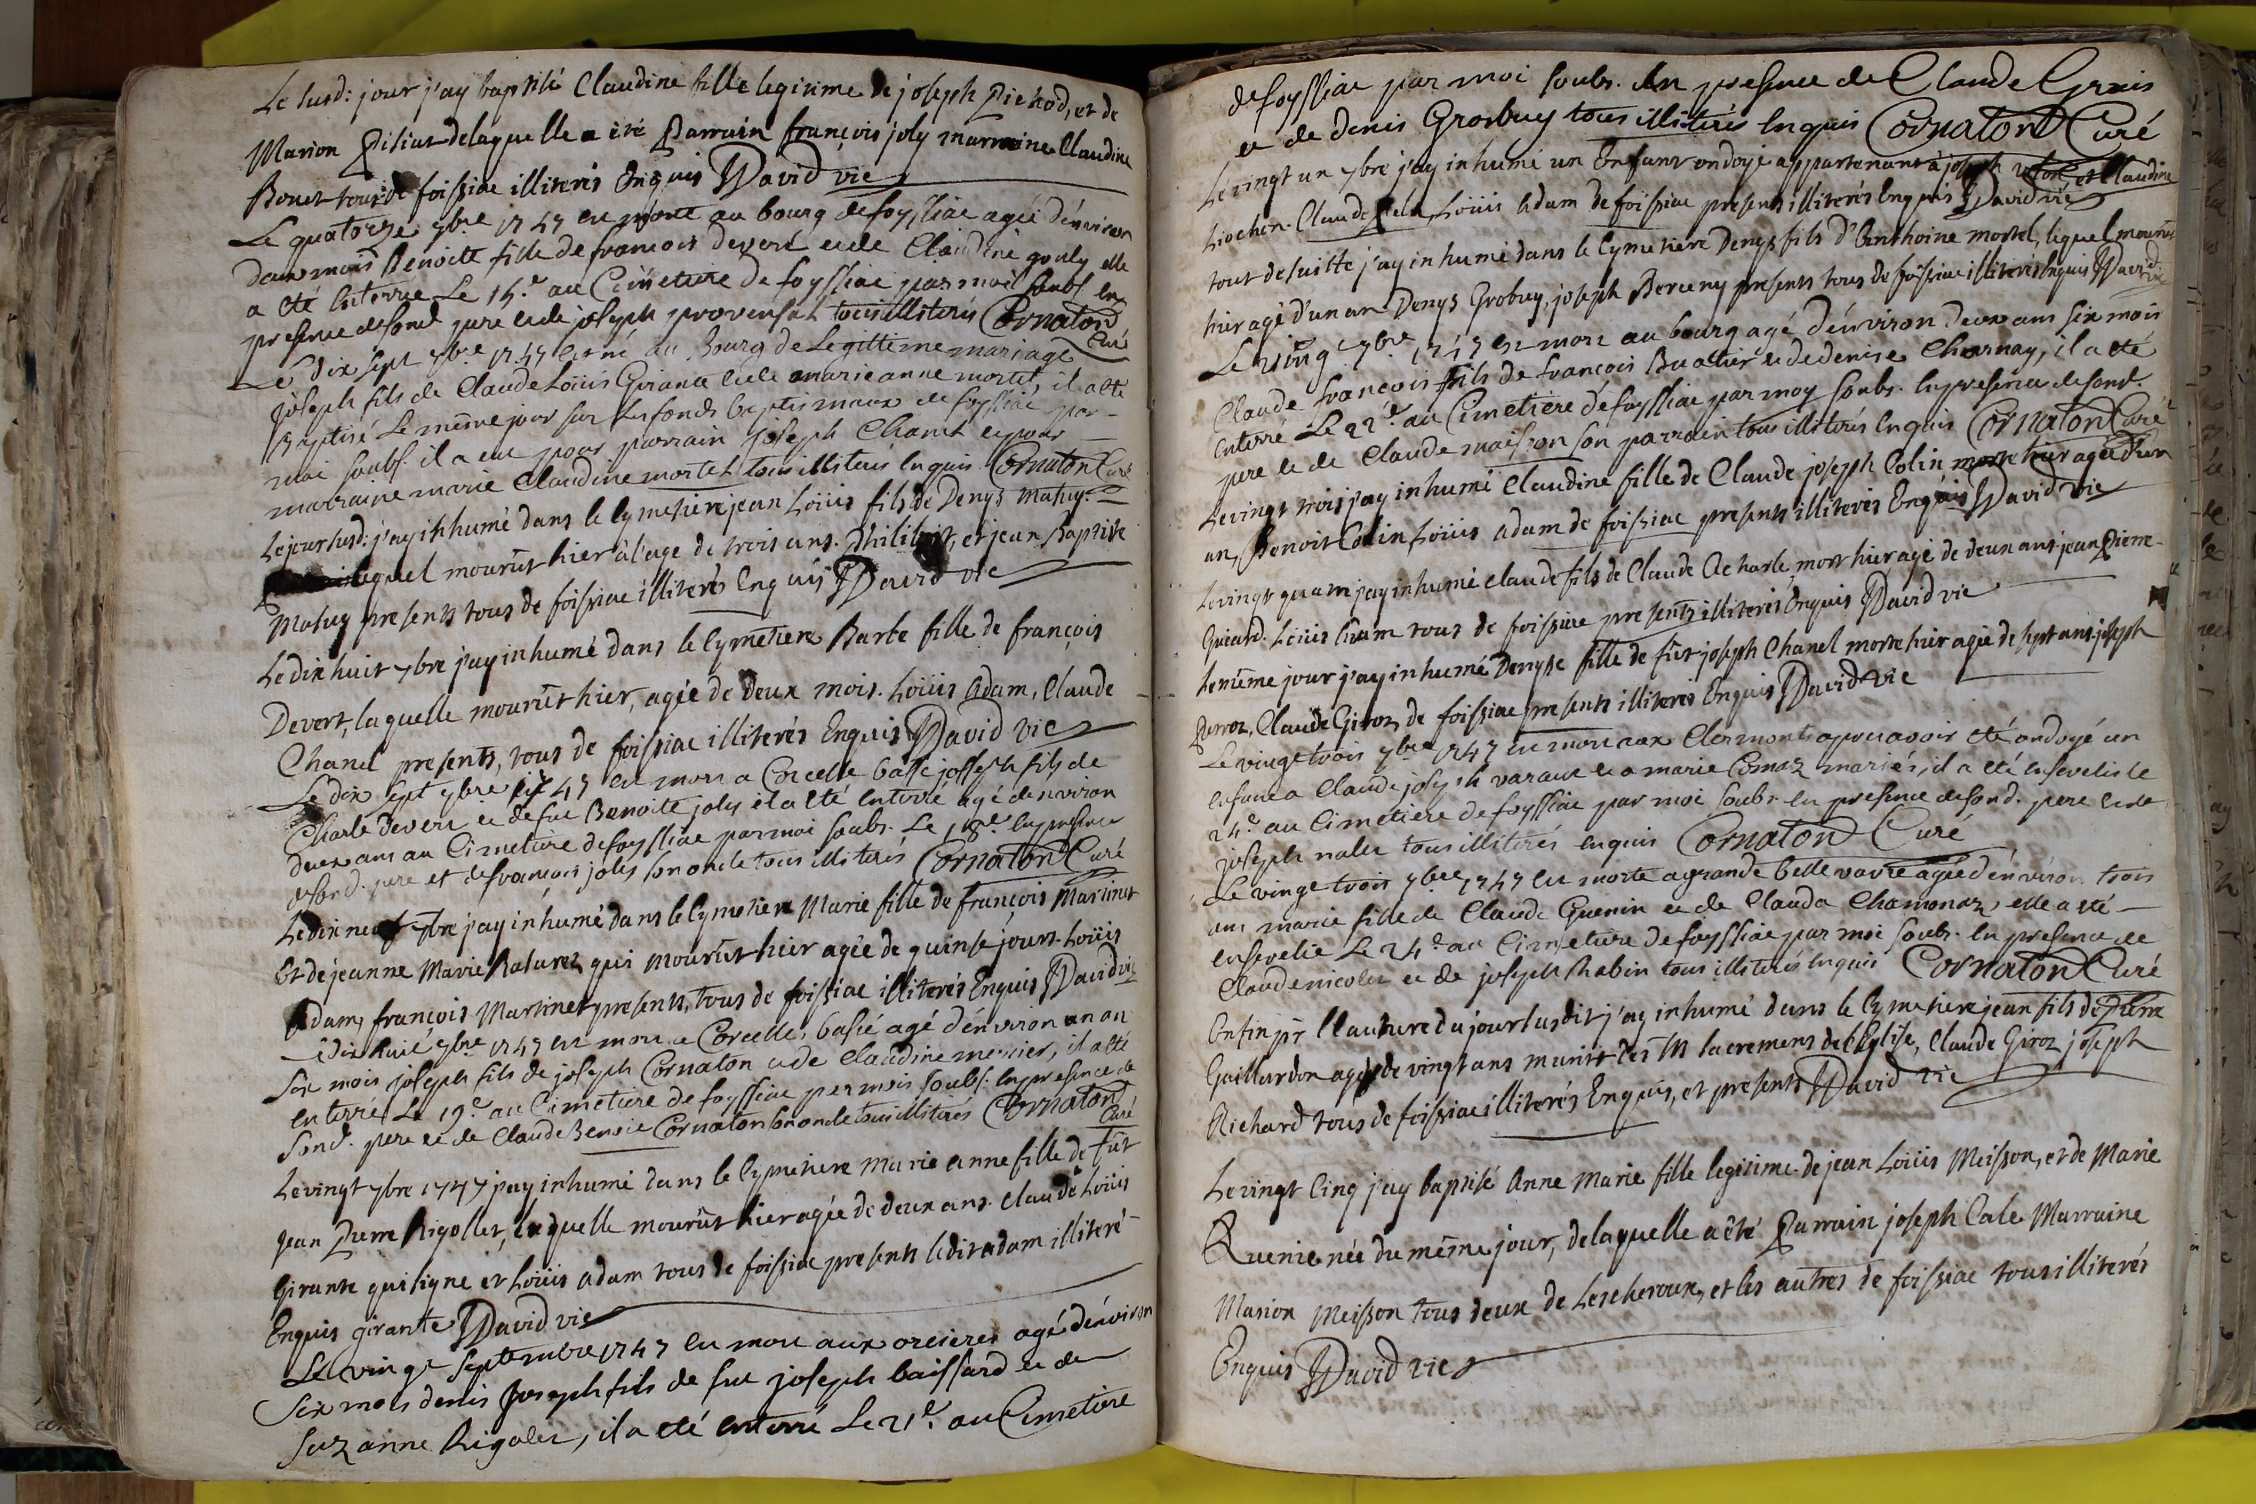 Le susd: jour j'ay baptisé Claudine fille legitime de joseph Pichod, et de
Marion Pitiat delaquelle a été Parrain françois joly marraine Claudine
Bonet tous de foissiac illiterés Enquis David vic
Le quatorze 7bre 1747 est morte au bourg de foyssiac agée d'environ
deux mois Benoitte fille de francois devert et de Claudine gouly elle
a été Enterrée Le 15e au Cimetiere de foyssiac par moi soubs. En
presence de sond. pere et de joseph provensal tous illiterés Cornaton
Curé
Le dix sept 7bre 1747 est né au Bourg de Legittime mariage
joseph fils de Claude Loüis Girante et de marie anne mortel, il a été
Baptisé Le même jour sur Les fonds baptismaux de foyssiac par
moi soubs. il a eut pour parrain joseph Chanel et pour
marraine marie Claudine mortel tous illiterés Enquis Cornaton Curé
Le jour susd: j'ay inhumé dans le Cymetiere jean Loüis fils de Denys Mathy
lequel mourût hier à l'age de trois ans. Philibert, et jean Baptiste
Mathy presents tous de foissiac illiterés Enquis David vic
Le dix huit 7bre j'ay inhumé dans le Cymetiere Barbe fille de françois
Devert, laquelle mourût hier, agée de deux mois. Loüis Adam, Claude
Chanel presents, tous de foissiac illiterés Enquis David vic
Le dix sept 7bre 1747 est mort a Corcelle basse joseph fils de
Charle devert et de fue Benoite joly il a été Enterré agé denviron
deux ans au Cimetiere de foyssiac par moi soubs. Le 18e En presence
de sond. pere et de francois joly son oncle tous illiterés Cornaton Curé
Le dix neuf 7bre j'ay inhumé dans le Cymetiere Marie fille de françois Martinet
Et de jeanne Marie Raturez qui mourût hier agée de quinse jours. Loüis
Adam, françois Martinet presents, tous de foissiac illiterés Enquis David vic
Le Dix huit 7bre 1747 est mort a Corcelle, basse agé d'environ un an
Six mois joseph fils de joseph Cornaton et de Claudine mercier, il a été
enterré Le 19e au Cimetiere de foyssiac par moi soubs. En presence de
Sond. pere et de Claude Benoit Cornaton son oncle tous illiterés Cornaton
Curé
Le vingt 7bre 1747 j'ay inhumé dans le Cymetiere Marie anne fille de fût
jean Pierre Rigollet, laquelle mourût hier agée de deux ans. Claude Loüis
Girante qui signe et Loüis adam tous de foissiac presents ledit adam illiteré
Enquis girante David vic
Le vingt Septembre 1747 est mort aux orcieres agé d'environ
Six mois denis joseph fils de fut joseph baissard et de
Suzanne Rigolet, il a été enterré Le 21e au Cimetiere
de foyssiac par moi soubs. En presence de Claude
et de denis Grosbuy tous illiterés Enquis Cornaton Curé
Le vingt un 7bre j'ay inhumé un Enfant ondoyé appartenant à joseph et Claudine
Liochon. Claude Loüis Adam de foissiac presents illiterés Enquis David vic
tout de suitte j'ay inhumé dans le Cymetiere Denys fils d'Anthoine mortel, lequel mourût
hier agé d'un an Denys Grobuy, joseph presents tous de foissiac illiterés Enquis David vic
Le vingt 7bre 1747 est mort au bourg agé d'environ deux ans six mois
Claude francois fils de francois Buatier et de denise Charnay, il a été
Enterré Le 22e au Cimetiere de foyssiac par moy soubs. En presence de sond.
pere et de Claude maisson son parrain tous illiterés Enquis Cornaton Curé
Le vingt trois j'ay inhumé Claudine fille de Claude joseph Colin morte hier agée d'un
an, Benoit Colin Loüis adam de foissiac presents illiterés Enquis David vic
Le vingt quatre j'ay inhumé claude fils de Claude Acharle, mort hier agé de deux ans. jean Pierre
Guicard. Loüis Adam tous de foissiac presents illiterés Enquis David vic
Le même jour j'ay inhumé Denyse fille de fût joseph Chanel morte hier agée de sept ans. joseph
Perroz, Claude Giroz de foissiac presents illiterés Enquis David vic
Le vingt trois 7bre 1747 est mort aux Clermonts apres avoir été ondoyé un
enfant a Claude joseph varaut et a marie Comaz mariés, il a été Enseveli le
24e au Cimetiere de foyssiac par moi soubs. en presence de sond. pere et de
joseph nalet tous illiterés enquis Cornaton Curé
Le vingt trois 7bre 1747 est morte a grande belle vavre agée d'environ trois
ans marie fille de Claude Guenin et de Clauda Chamonaz, elle a été
ensevelie Le 24e au Cimetiere de foyssiac par moi soubs. En presence de
Claude nicolet et de joseph Rabin tous illiterés Enquis Cornaton Curé
Enfin pr Clauture du jour susdit j'ay inhumé dans le Cymetiere jean fils de Pierre
Gaillardon agé de vingt ans munit des sts sacremens de l'Eglise, Claude Giroz joseph
Richard tous de foissiac illiterés Enquis, et presents David vic
Le vingt Cinq j'ay baptisé Anne Marie fille legitime de jean Loüis Meisson, et de Marie
née du même jour, de laquelle a été Parrain joseph Cale Marraine
Marion Meisson tous deux de Lescheroux, et les autres de foissiac tous illiterés
Enquis David vic